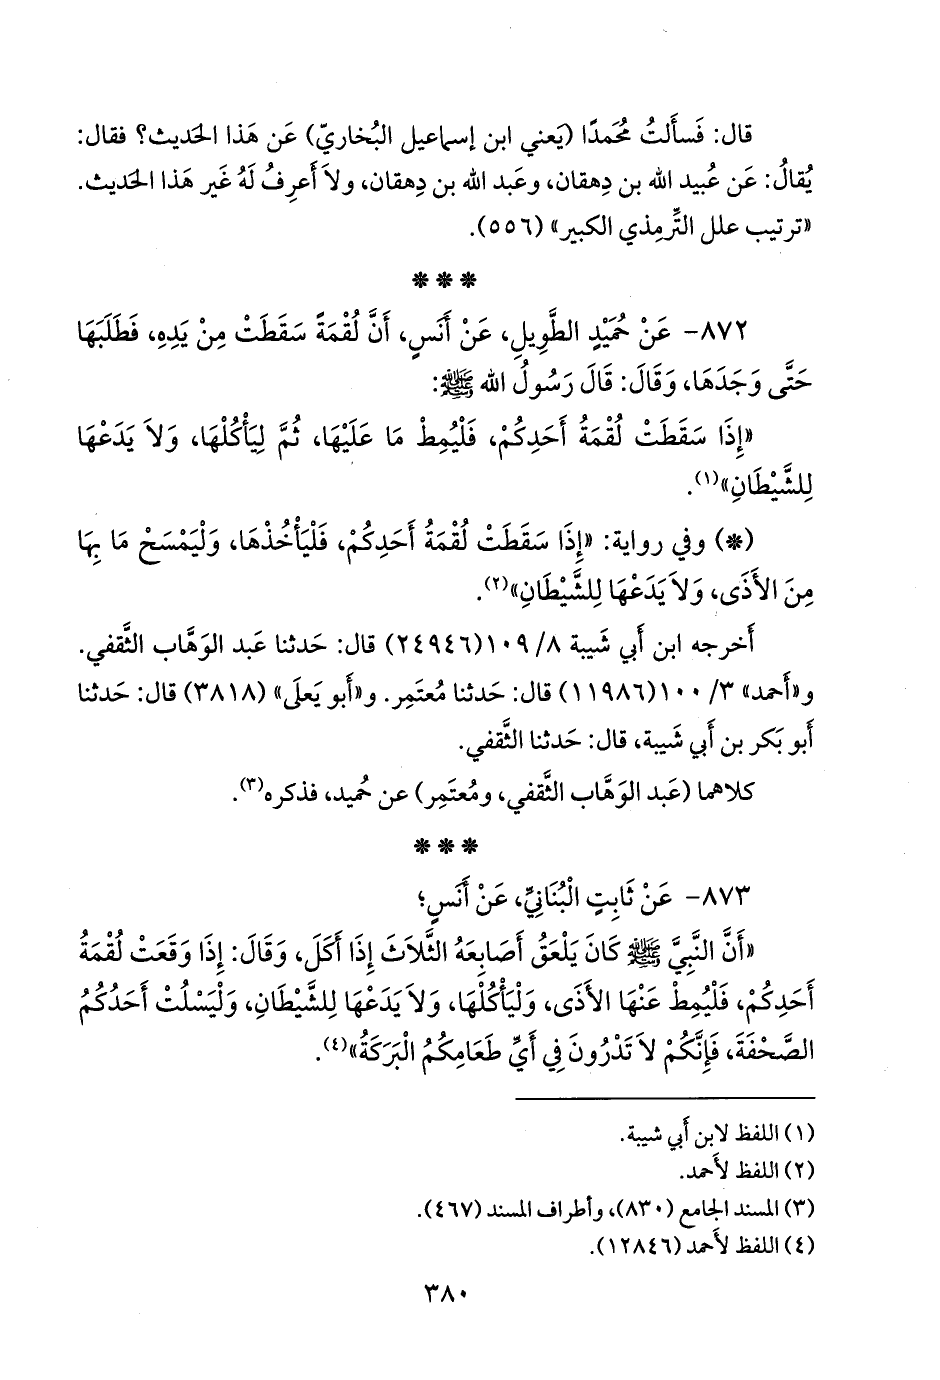 قال: فَسأَلتُ مُحَمدًا (يَعني ابن إسماعيل البُخاريّ) عَن هَذا الحَديث؟ فقال:
يُقالُ: عَن عُبيد الله بن دِهقان، وعَبد الله بن دِهقان، ولاَ أَعرِفُ لَهُ غَير هَذا الحَديث.
«ترتيب علل التِّرمِذي الكبير» (٥٥٦).
***
٨٧٢- عَنْ حُمَيْدٍ الطَّوِيلِ، عَنْ أَنَسٍ، أَنَّ لُقْمَةً سَقَطَتْ مِنْ يَدِهِ، فَطَلَبَهَا
حَتَّى وَجَدَهَا، وَقَالَ: قَالَ رَسُولُ الله ﷺ:
«إِذَا سَقَطَتْ لُقْمَةُ أَحَدِكُمْ، فَلْيُمِطْ مَا عَلَيْهَا، ثُمَّ لِيَأْكُلْهَا، وَلاَ يَدَعْهَا
لِلشَّيْطَانِ»(١).
(*) وفي رواية: «إِذَا سَقَطَتْ لُقْمَةُ أَحَدِكُمْ، فَلْيَأْخُذْهَا، وَلْيَمْسَحْ مَا بِهَا
مِنَ الأَذَى، وَلاَ يَدَعْهَا لِلشَّيْطَانِ»(٢).
أَخرجه ابن أَبي شَيبة ٨/ ١٠٩(٢٤٩٤٦) قال: حَدثنا عَبد الوَهَّاب الثَّقفي.
و«أَحمد» ٣/ ١٠٠(١١٩٨٦) قال: حَدثنا مُعتَمِر. و«أَبو يَعلَى» (٣٨١٨) قال: حَدثنا
أَبو بَكر بن أَبي شَيبة، قال: حَدثنا الثَّقفي.
كلاهما (عَبد الوَهَّاب الثَّقفي، ومُعتَمِر) عن حُميد، فذكره(٣).
***
٨٧٣- عَنْ ثَابِتٍ الْبُنَانِيِّ، عَنْ أَنَسٍ؛
«أَنَّ النَّبِيَّ ﷺ كَانَ يَلْعَقُ أَصَابِعَهُ الثَّلاَثَ إِذَا أَكَلَ، وَقَالَ: إِذَا وَقَعَتْ لُقْمَةُ
أَحَدِكُمْ، فَلْيُمِطْ عَنْهَا الأَذَى، وَلْيَأْكُلْهَا، وَلاَ يَدَعْهَا لِلشَّيْطَانِ، وَلْيَسْلُتْ أَحَدُكُمُ
الصَّحْفَةَ، فَإِنَّكُمْ لاَ تَدْرُونَ فِي أَيِّ طَعَامِكُمُ الْبَرَكَةُ»(٤).
(١) اللفظ لابن أَبي شيبة.
(٢) اللفظ لأَحمد.
(٣) المسند الجامع (٨٣٠)، وأطراف المسند (٤٦٧).
(٤) اللفظ لأَحمد (١٢٨٤٦).
٣٨٠